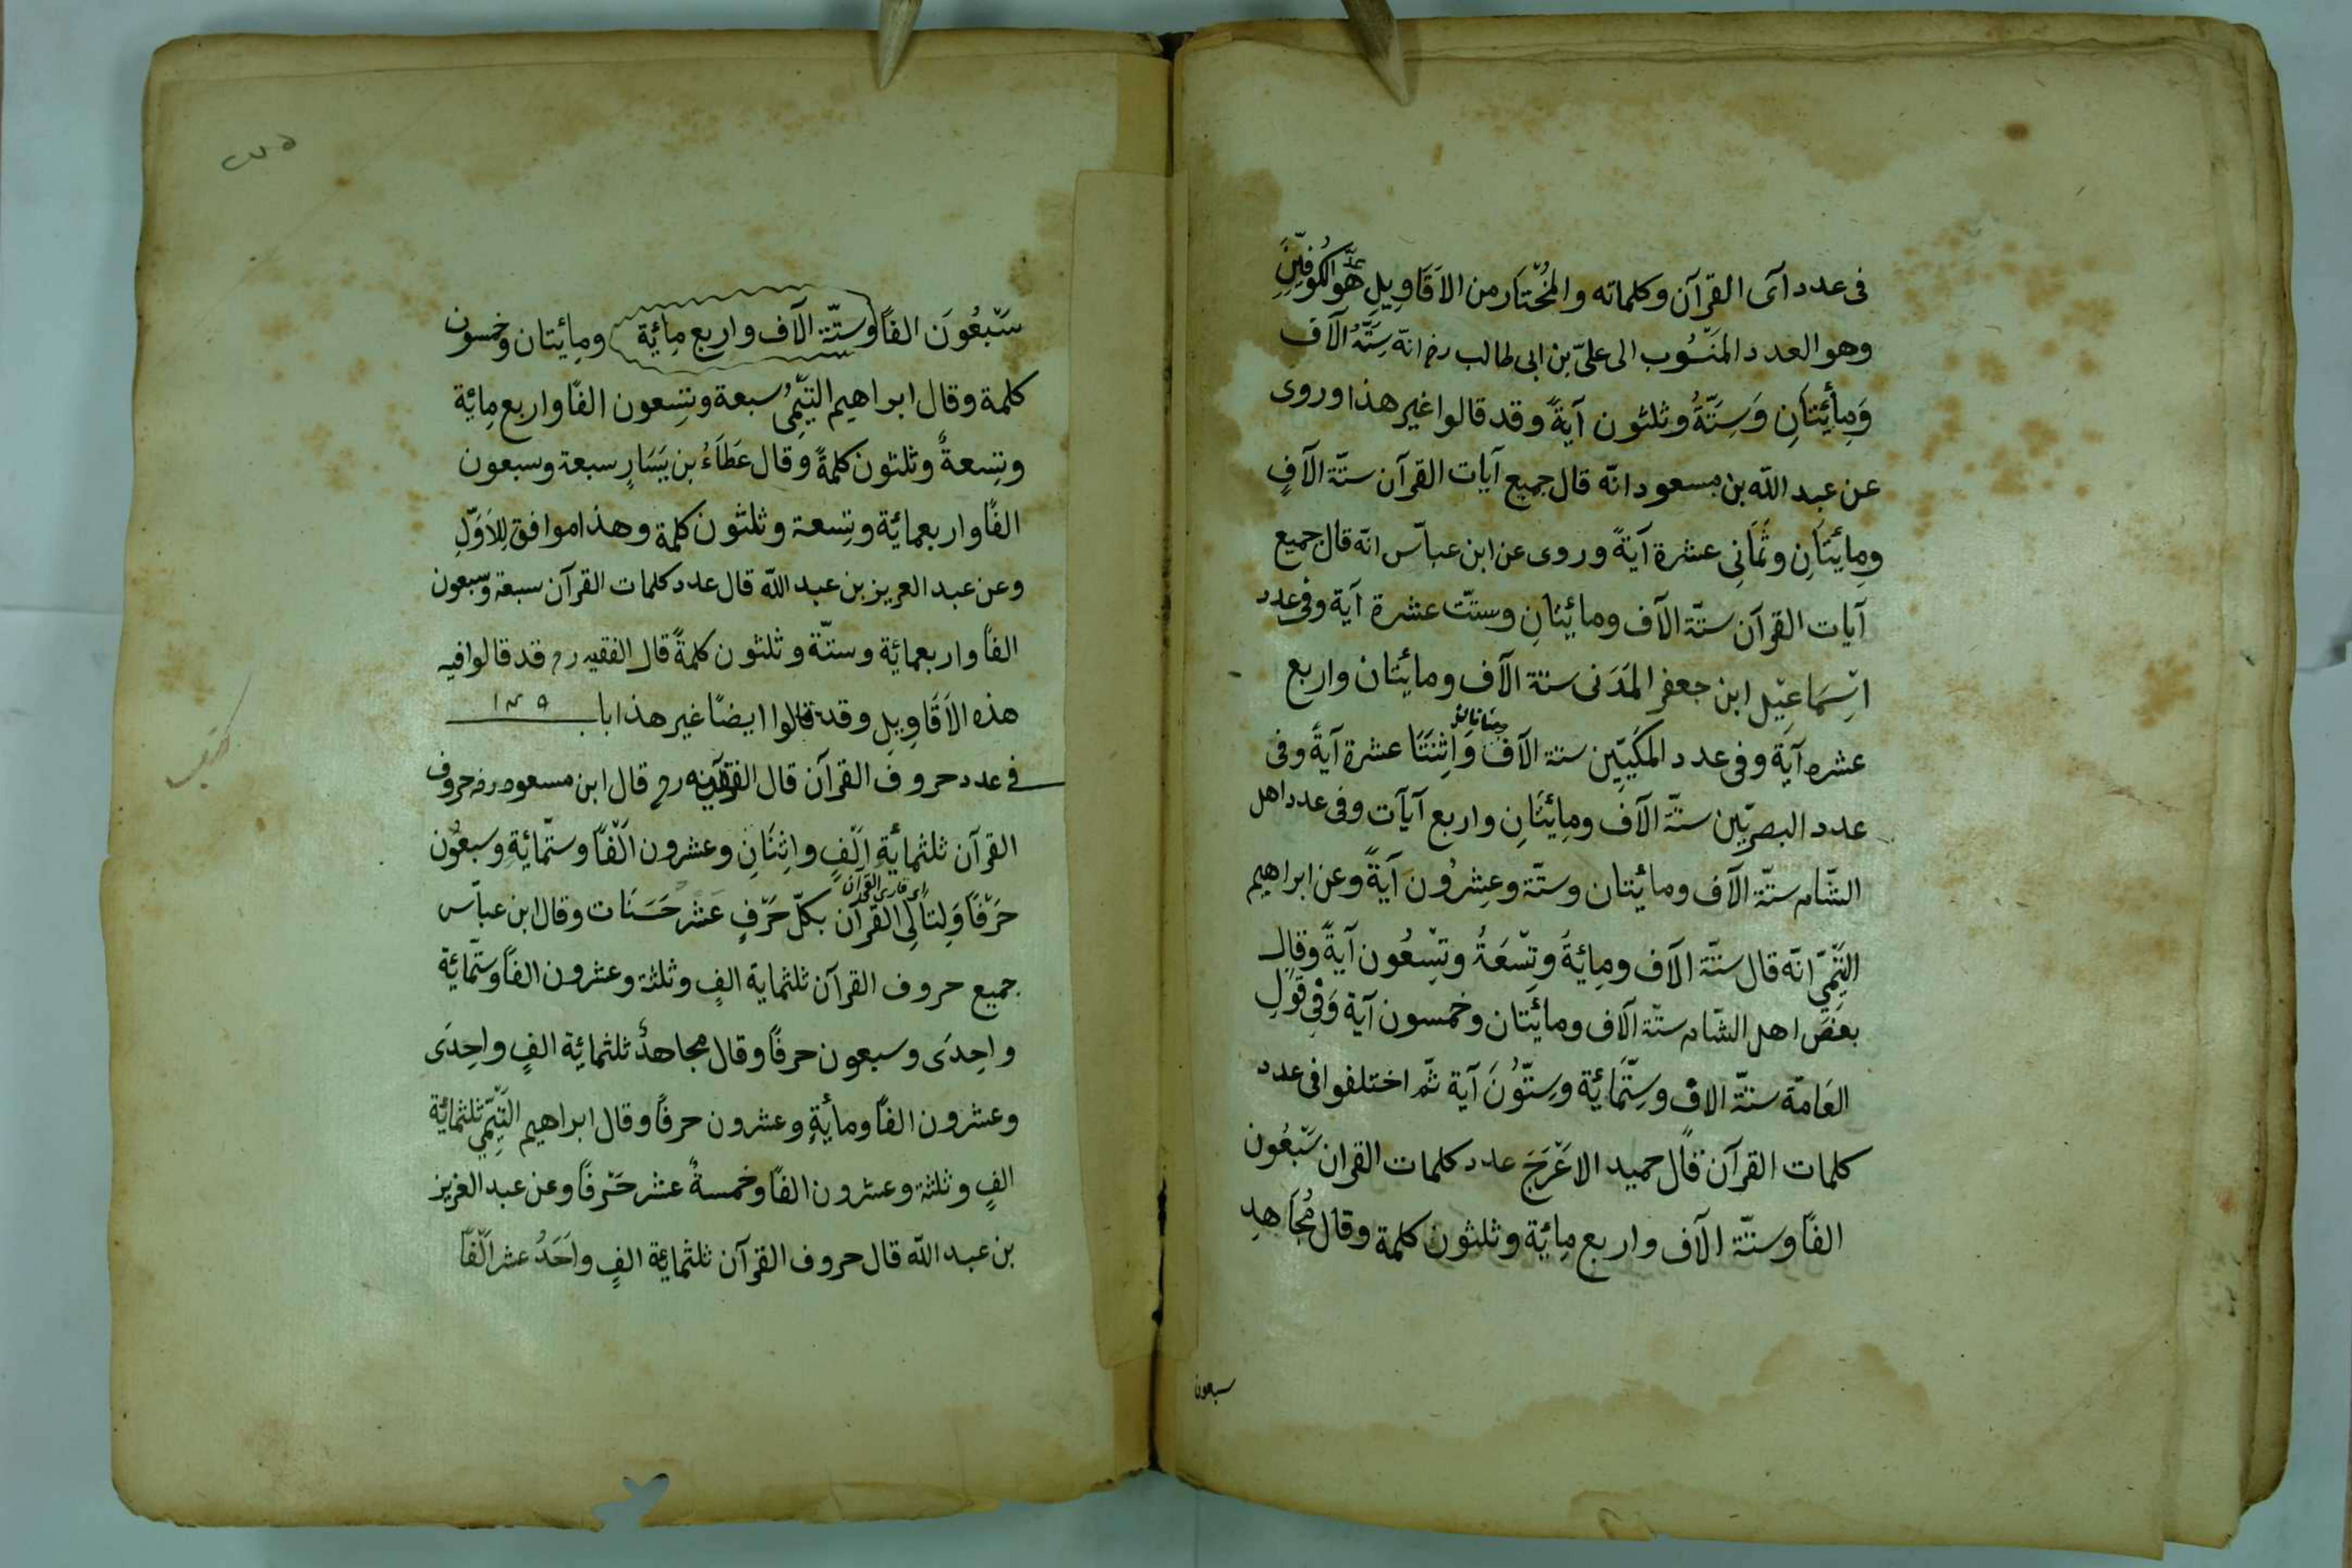 فى عدد آى القرآن وكلماته والمُخْتَار من الاَقَاوِيلِ هو عدّ الكُوفيّينِ
وهو العدد المَنْسُوب الى علىّ بن ابى طالب رضـ انّه سِتَّةُ آلاف
وَمِأئَتَانِ وَسِتَّةُ وثلثون آيةً وقد قالوا غير هذا وروى
عن عبد اللّه بن مسعود انّه قال جميع آيات القرآن ستّة الآفٍ
ومِائَتَانِ وثَمَانِى عشرة آيةً وروى عن ابن عبّاس انّه قال جميع
آيات القرآن ستّة الآف ومائتانِ وستّت عشرة آية وفى عدد
اِسْمَاعِيْلِ ابن جعفر المَدَنى ستة الآف ومائتان واربع
عشره آيَة وفى عدد المكيّيّن ستة الآف وَاثِنَتَا عشرة آيةً وفى
عدد البصريّين ستّة الآف ومِائتَانِ واربع آيآت وفى عدد اهل
الشّام ستّة الآف ومائتان وستّة وعِشرُون آيةً وعن ابراهيم
التَّيْمِيّ انّه قال ستّة الآف ومِائةَ وتِسْعَةُ وتِسْعُون آيةً وقال
بعضَ اهل الشّام ستّة آلاف ومائَتان وخمسون آية وَفِى قَوْلِ
العَامّة ستّة الاف وسِتّمَائة وسِتُّوْنَ آية ثمّ اختلفوا فى عدد
كلمات القرآن قال حميد الاعَْرَجَ عدد كلمات القران سَبْعُون
الفًا وستّة الآف واربع مِائة وثلثون كلمة وقال مُجَاهدِ
سبعون
سَبْعُونَ الفاً وستّة الآف واربع مِائة ومِائتان وخمسون
كلمة وقال ابراهيم التَّيْمِىُ سبعة وتِسعون الفًا واربع مِائة
وتِسعةٌ وثلثون كلمةً وقال عَطَاءُ بن يَسَارٍ سبعة وسبعون
الفًا واربعمائة وتِسعة وثلثون كلمة وهذا موافق لِلاَوّلِ
وعن عبد العزيز بن عبد اللّه قال عدد كلمات القرآن سبعة وسبعون
الفاً واربعمائة وستّة وثلثون كلمةً قال الفقيه رح قد قالوا فيه
هذه الاَقَاوِيلِ وقد قالوا ايضًا غير هذا باب
فى عدد حروف القرآن قال الفقيه رح قال ابن مسعود رضـ حروف
القرآن ثلثمائةِ اَلْفٍ واثِنَانِ وعشرون اَلْفًا وستّمائةِ وسبعُون
حَرْفًا وَلِتالِى القرآن بكلّ حَرْفٍ عَشْر حَسَنَات وقال ابن عبّاس
اى قارى القرآن
جميع حروف القرآن ثلثماية الفٍ وثلثة وعشرون الفًا وستّمائة
واحِدَى وسبعون حرفًا وقال مجاهدٌ ثلثمائة الفٍ واحِدَى
وعشرون الفًا ومأيةِ وعشرون حرفًا وقال ابراهيم التَّيْمِي ثلثمائة
الفٍ وثلثة وعشرون الفًا وخمسةُ عشر حَرفًا وعن عبد العزيز
بن عبد اللّه قال حروف القرآن ثلثمائة الفٍ واَحَدُ عشر اَلْفًا